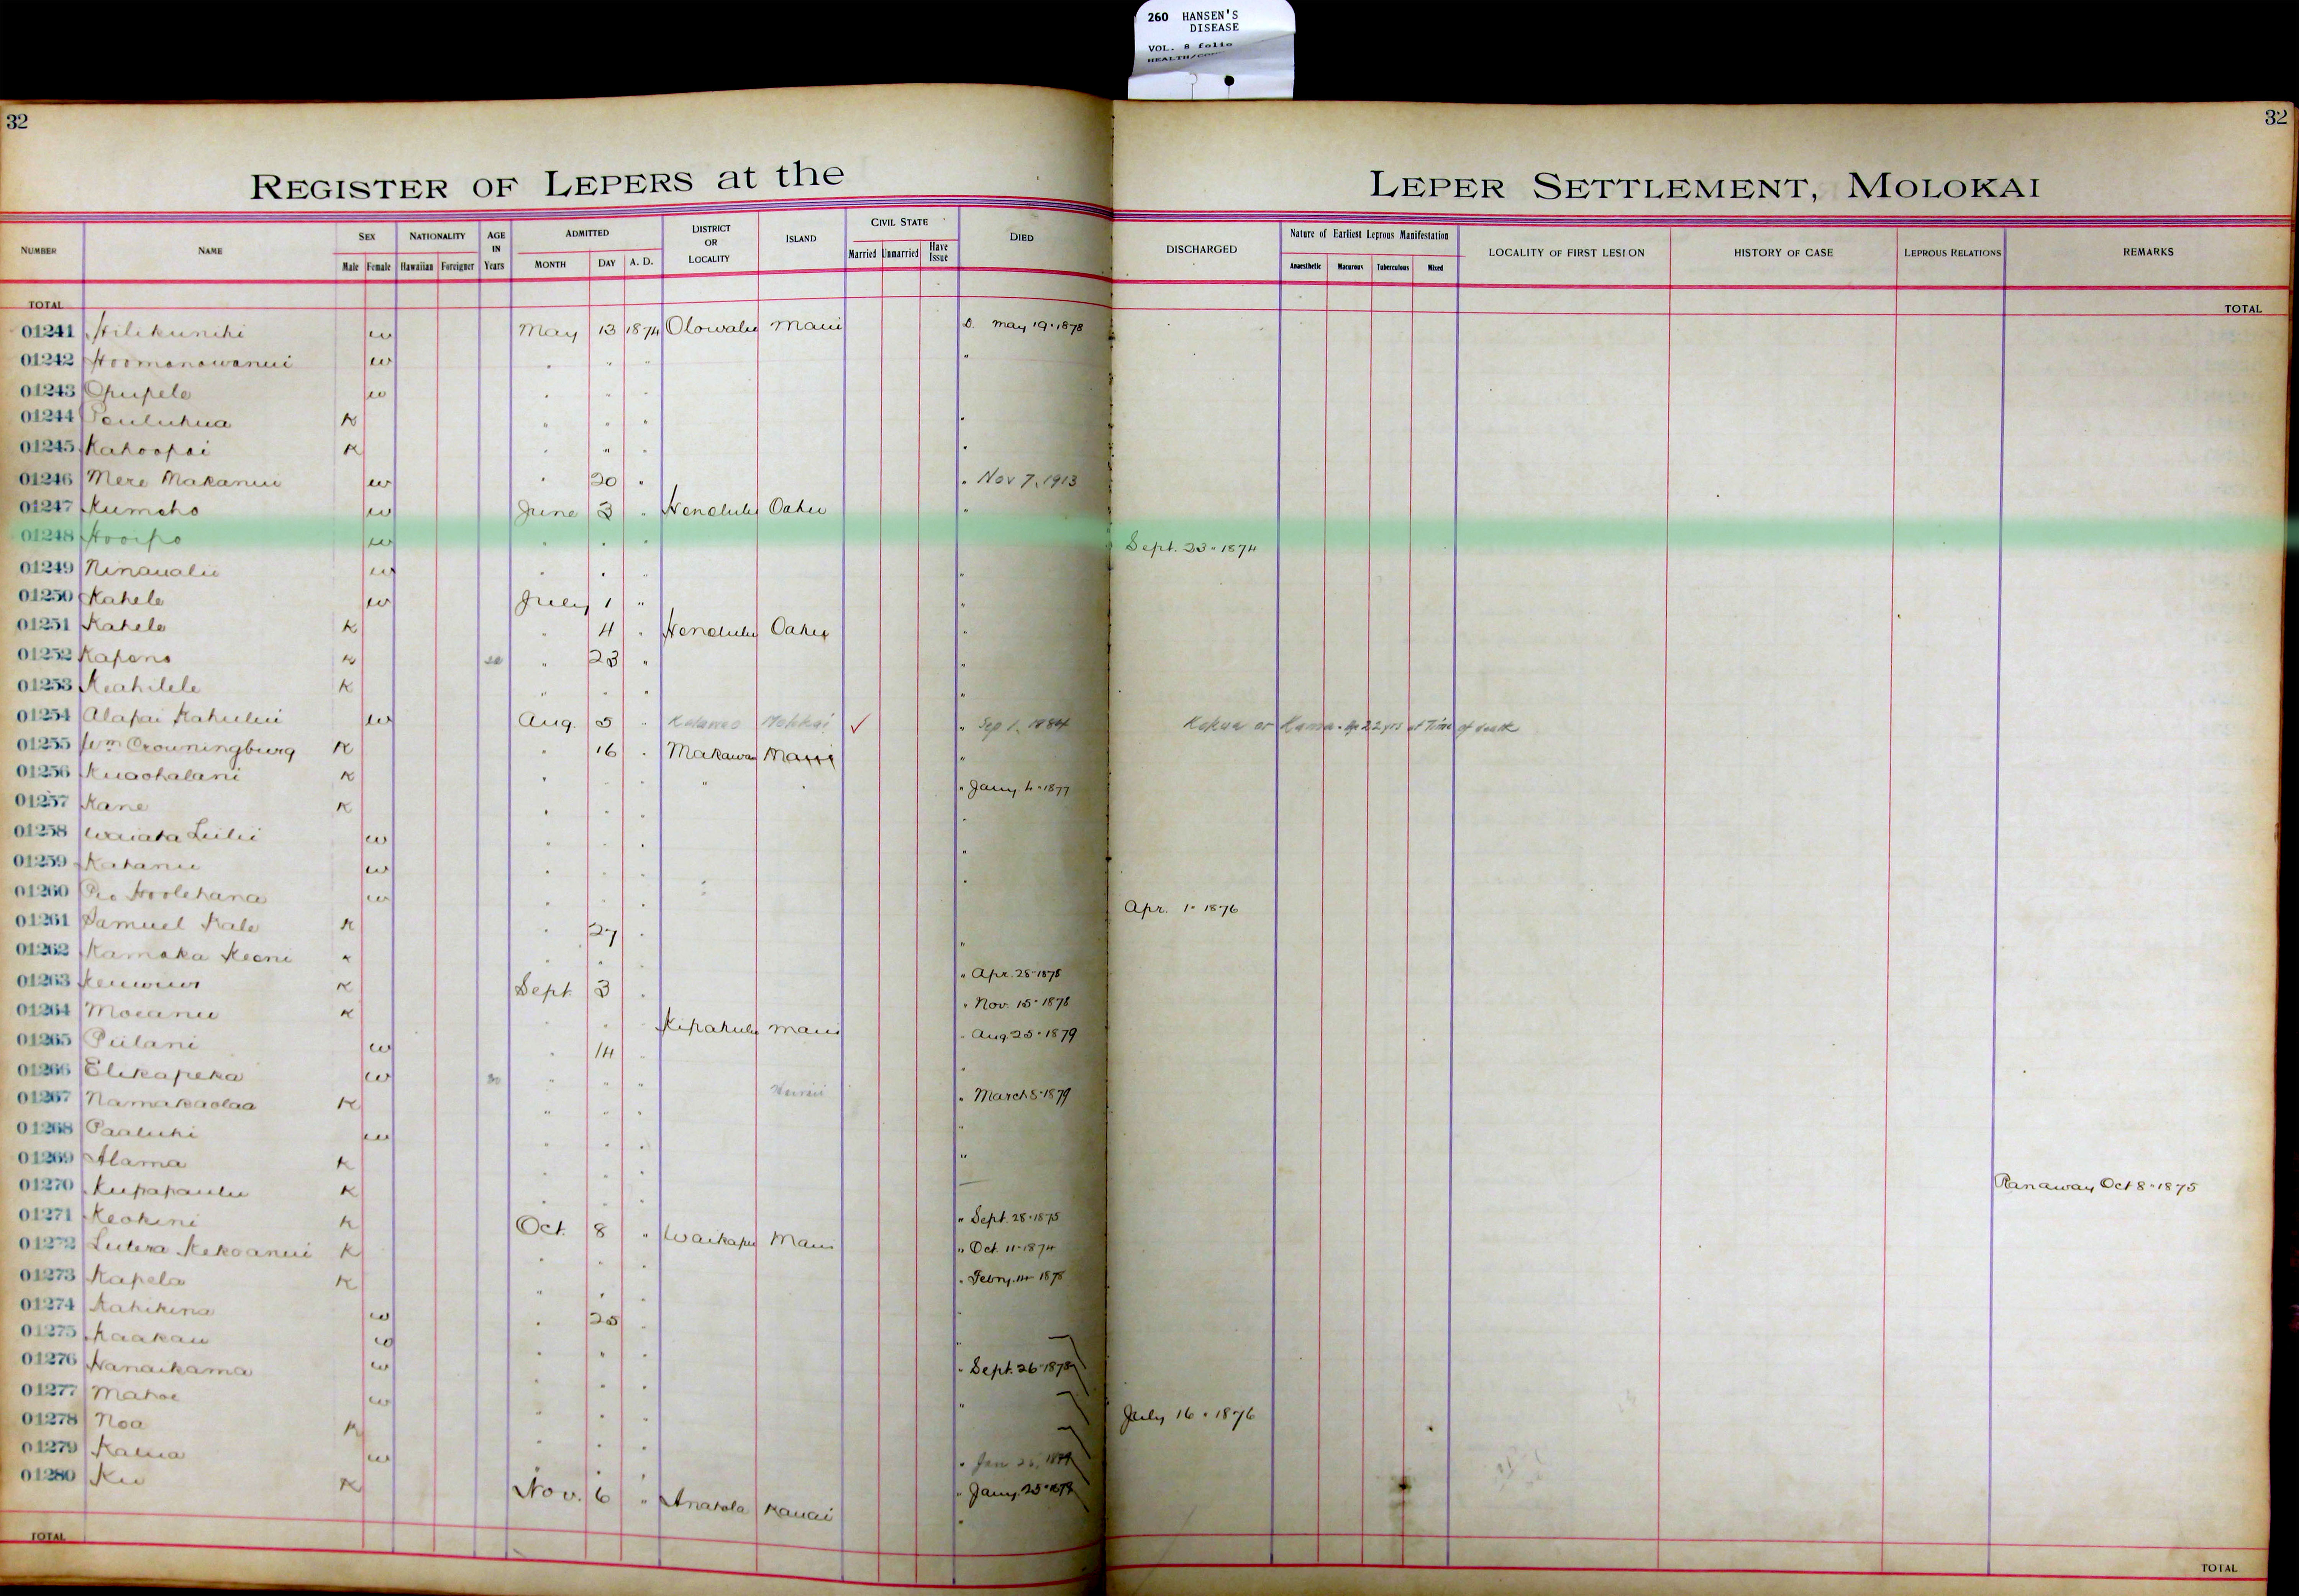 260 HANSEN'S
DISEASE
VOL. 8 folio
32
32
REGISTER OF LEPERS at the LEPER SETTLEMENT, MOLOKAI
NUMBER NAME SEX NATIONALITY AGE IN Years ADMITTED DISTRICT OR LOCALITY ISLAND CIVIL STATE DIED DISCHARGED Nature of Earliest Leprous Manifestation LOCALITY OF FIRST LESION HISTORY OF CASE LEPROUS RELATIONS REMARKS
Male Female Hawaiian Foreigner MONTH DAY A. D. Married Unmarried Have Issue Anaesthetic Macurous Tuberculous Mixed
TOTAL TOTAL
01241 Hilikunihi w May 13 1874 Olowalu Maui D. May 19 1878
01242 Hoomanawanui w " " " "
01243 Opupele w " " "
01244 Pauluhua K " " " "
01245 Kahoopai K " " " "
01246 Mere Makanui w " 20 " " Nov 7, 1913
01247 Kumeho w June 3 " Honolulu Oahu "
01248 Hooipo w " " " Sept. 23 1874
01249 Ninaualii w " " " "
01250 Kahele w July 1 " "
01251 Kahele K " 4 " Honolulu Oahu "
01252 Kapena K " 23 " "
01253 Keahilele K " " " "
01254 Alapai Kahului w Aug. 5 " Kalawao Molokai ✓ " Sep 1, 1884 Kokua or Kamaa. Age 22 yrs at Time of death
01255 Wm Crowningburg K " 16 " Makawao Maui "
01256 Kuaohalani K " " " " " " Jany 4 1877
01257 Kane K " " " "
01258 Waiata Luilii w " " " "
01259 Kahanu w " " " "
01260 Pio Hoolehana w " " " Apr. 1 1876
01261 Samuel Kale K " 27 " "
01262 Kamaka Keoni K " " " Apr. 28 1878
01263 Keuwus K Sept 3 " " Nov. 15 1878
01264 Moeanu K " " " Kipahulu Maui " Aug 25 1879
01265 Piilani w " 14 " "
01266 Elikapeka w 30 " " " Hawaii " March 5 1879
01267 Namakaolaa K " " " "
01268 Paaluhi w " " " "
01269 Alama K " " "
01270 Kupapaulu K " " " Ranaway Oct 8 1875
01271 Keokini K Oct. 8 " Waikapu Maui " Sept. 28 1875
01272 Lutera Kekoanui K " " " " Oct. 11 1874
01273 Kapela K " " " " Febry. 14 1878
01274 Kahikina w " 25 " "
01275 Kaakau w " " " "
01276 Nanaikama w " " " " Sept. 26 1878
01277 Mahoe w " " " "
01278 Noa K " " " July 16 1876
01279 Kalua w " " " " Jan 26,
01280 Ku K Nov. 6 " Anahola Kauai " Jany. 25 1879
TOTAL TOTAL